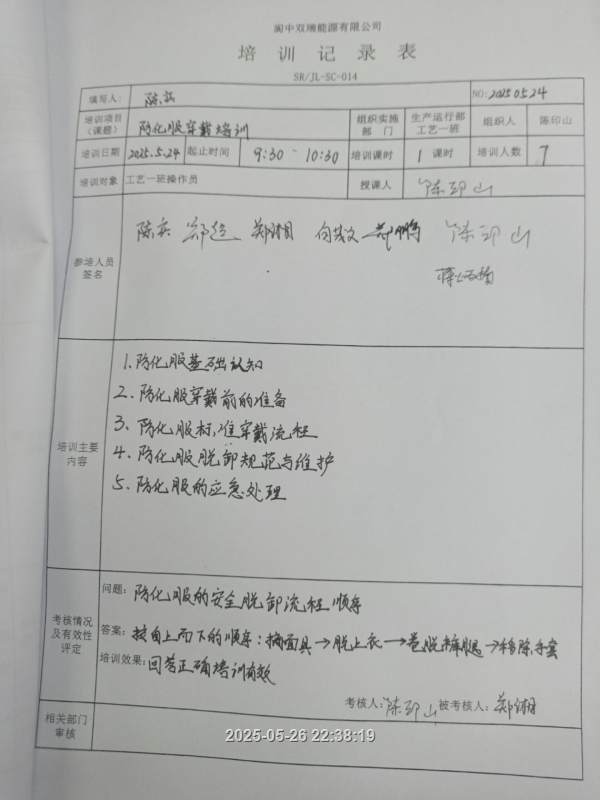 阆中双瑞能源有限公司
培训记录表
SR/JL-SC-014
填写人： 陈兵 NO:20250524
培训项目（课题） 防化服穿戴培训 组织实施部门 生产运行部工艺一班 组织人 陈印山
培训日期 2025.5.24 起止时间 9:30 ~ 10:30 培训课时 1 课时 培训人数 7
培训对象 工艺一班操作员 授课人 陈印山
参培人员签名 郑湘 陈印山
培训主要内容
1、防化服基础认知
2、防化服穿戴前的准备
3、防化服标准穿戴流程
4、防化服脱卸规范与维护
5、防化服的应急处理
考核情况及有效性评定
问题： 防化服的安全脱卸流程顺序
答案： 按自上而下的顺序：摘面具→脱上衣→卷脱裤腿→移除手套
培训效果： 回答正确培训有效
考核人：陈印山 被考核人：郑湘
相关部门审核
2025-05-26 22:38:19